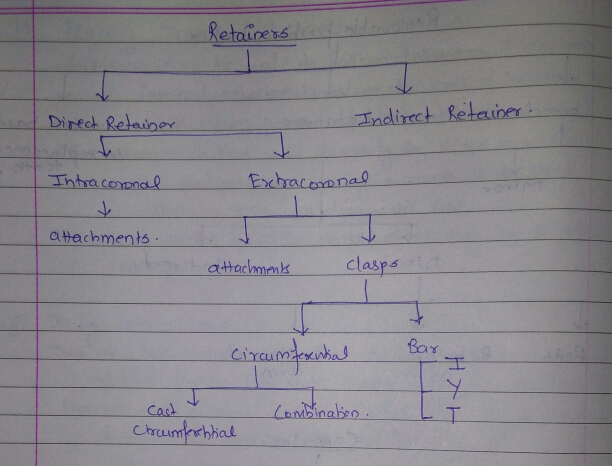 Retainers
Direct Retainer
Indirect Retainer.
Intracoronal
Extracoronal
attachments.
attachments
Clasps
Circumferential
Bar
I
Y
T
Cast
Circumferential
Combination.